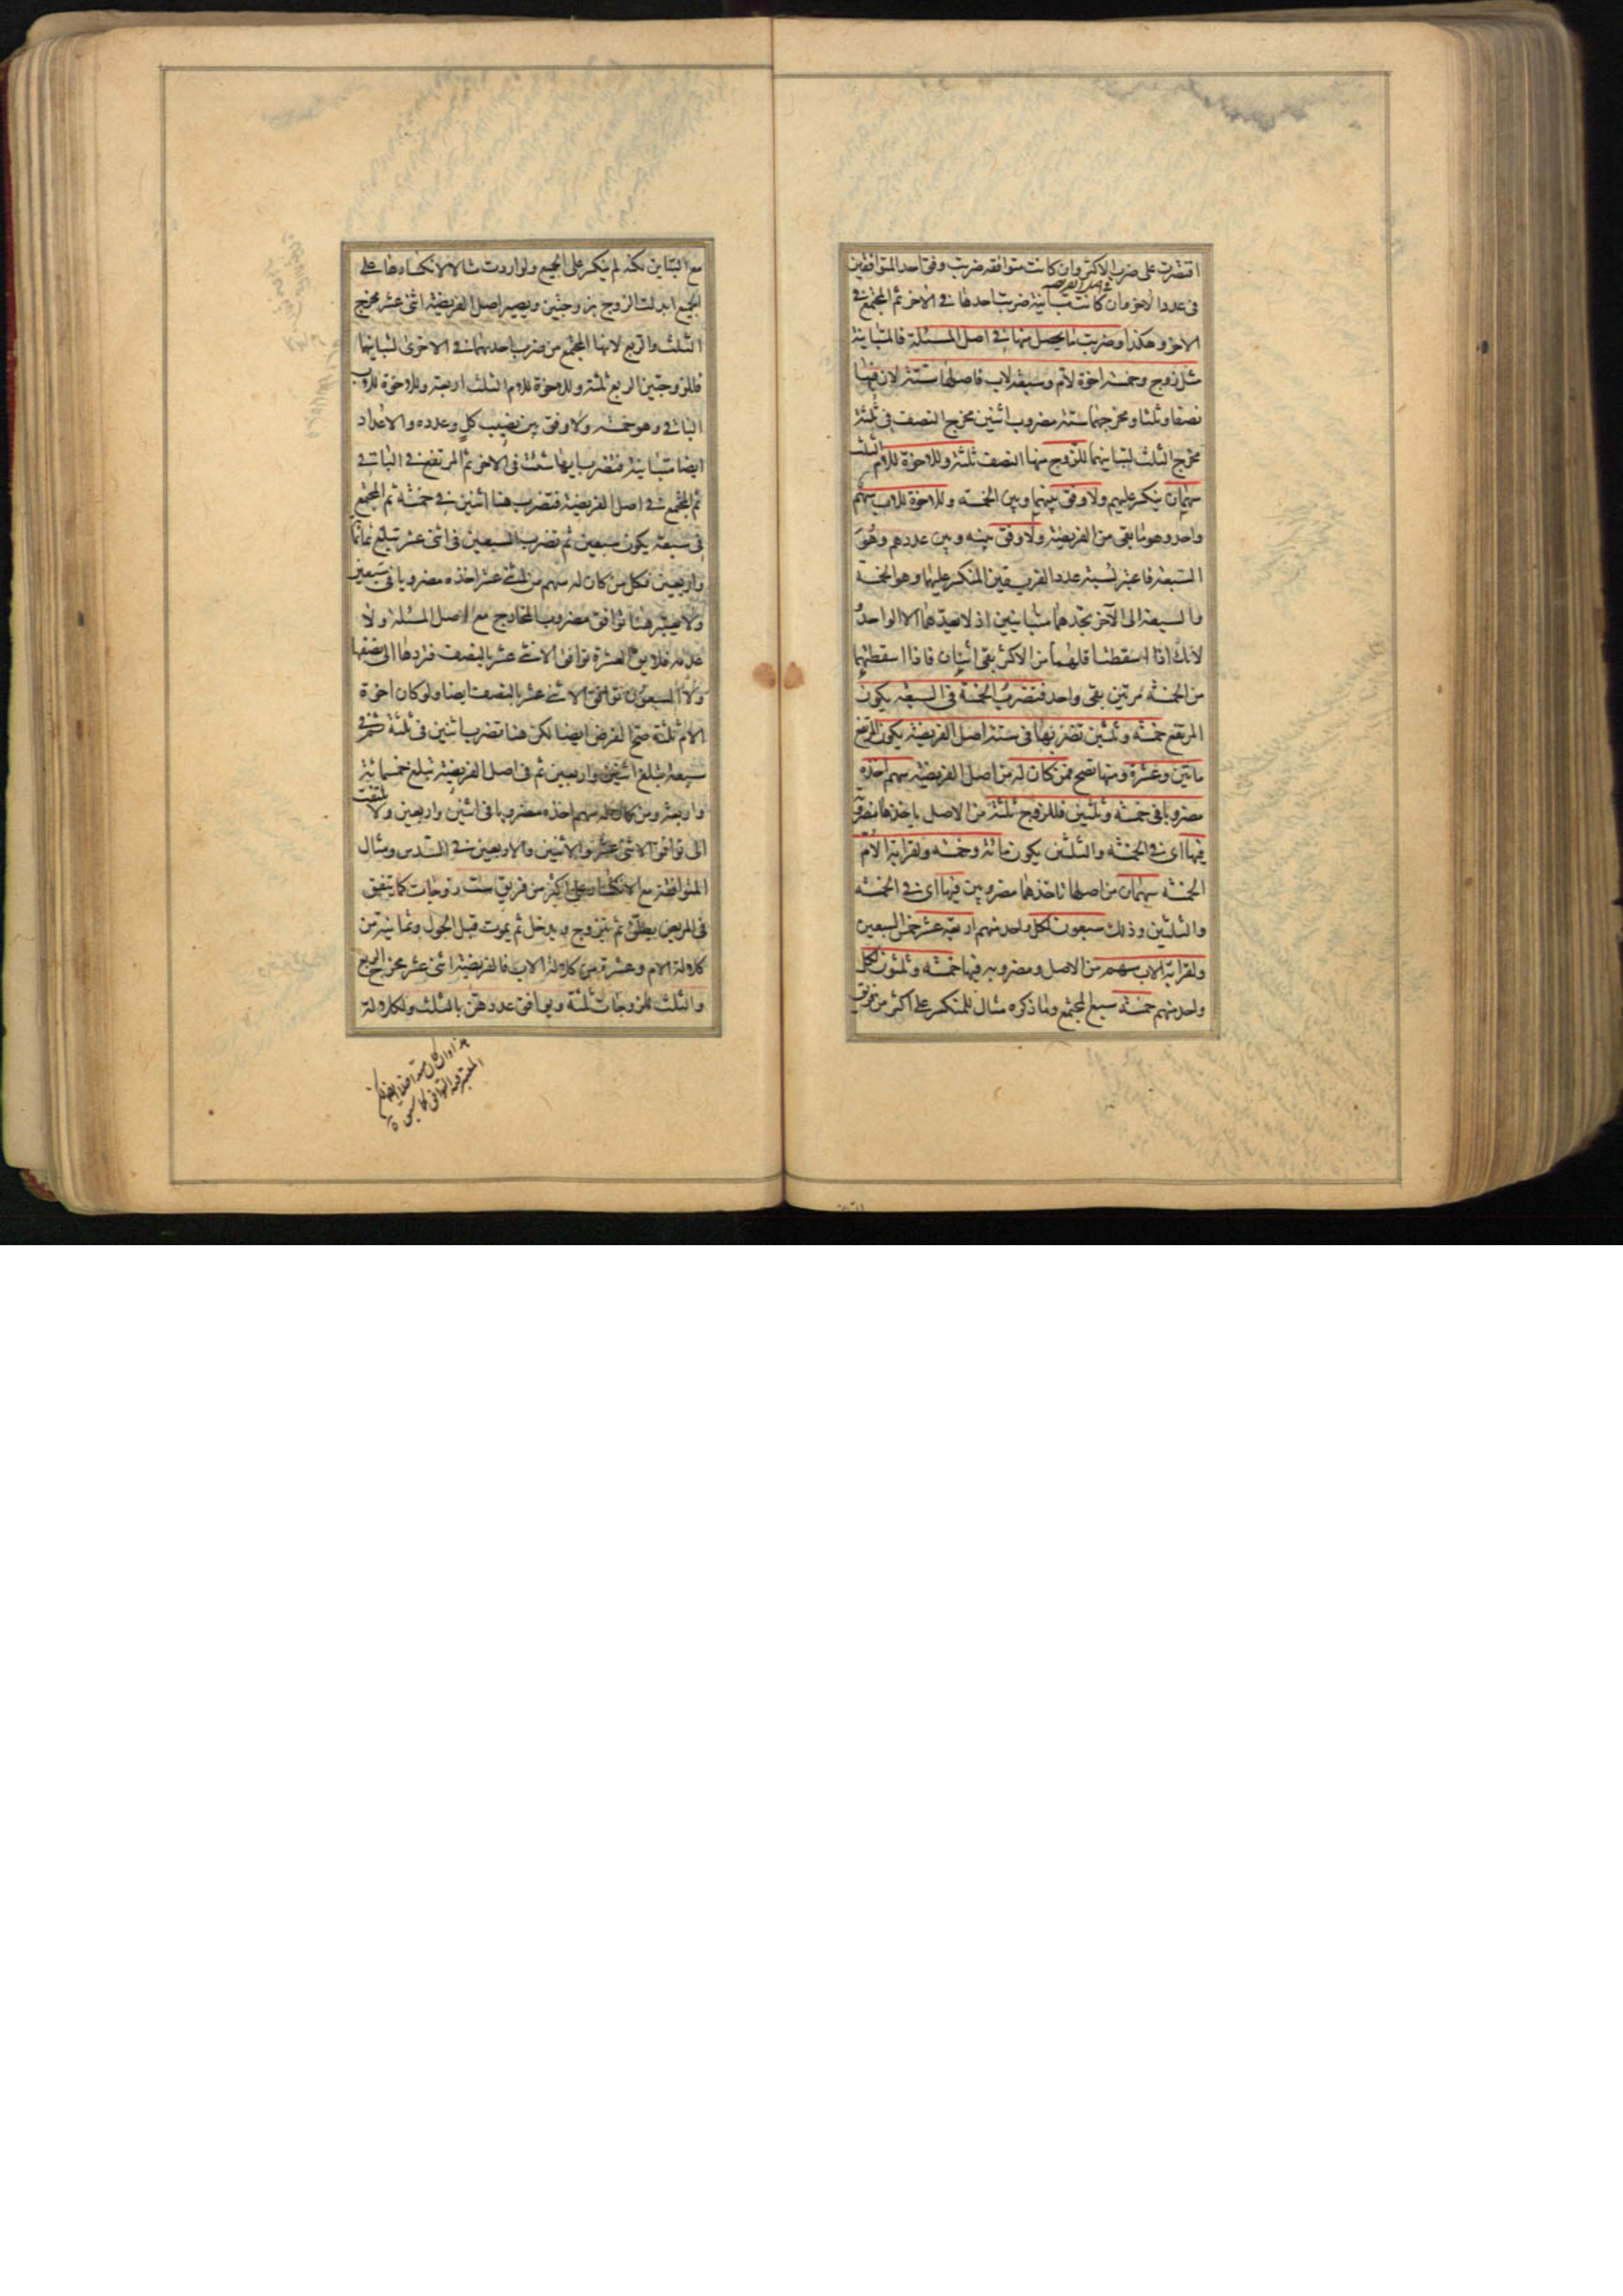 اقتصرت على ضرب الاكثر وان كانت متوافقه ضربت وفق احد المتوافقين
فى عدد الاخر وان كانت متباينة ضربت احدها فى الاخر ثم المجتمع فى
الاخر وهكذا وضربت ما يحصل منها فى اصل المسئلة فالمتباينة
مثل زوج وخمسة اخوة لام وسبعة لاب فاصلها ستة لان فيها
نصفا وثلثا ومخرجهما ستة مضروب اثنين مخرج النصف فى ثلثة
مخرج الثلث لتباينهما للزوج منها النصف ثلثة وللاخوة للام الثلث
سهمان ينكسر عليهم ولا وفق بينهما وبين الخمسة وللاخوة للاب سهم
واحد وهو ما بقى من الفريضة ولا وفق بينه وبين عددهم وهو
السبعة فاعتبر نسبة عدد الفريقين المنكسر عليهما وهو الخمسة
والسبعة الى الآخر تجدهما متباينين اذ لا يعدهما الا الواحد
لانك اذا اسقطت اقلهما من الاكثر بقى اثنان فاذا اسقطتهما
من الخمسة مرتين بقى واحد فتضرب الخمسة فى السبعة يكون
المرتفع خمسة وثلثين تضربها فى ستة اصل الفريضة يكون المرتفع
ماتين وعشرة ومنها تصح فمن كان له من اصل الفريضة سهم اخذه
مضروبا فى خمسة وثلثين فللزوج ثلثة من الاصل ياخذها مضروبة
فيها اى فى الخمسة والثلثين يكون مائة وخمسة ولقرابة الام
الخمسة سهمان من اصلها تاخذهما مضروبين فيها اى فى الخمسة
والثلثين وذلك سبعون لكل واحد منهم اربعة عشر خمس السبعين
ولقرابة الاب سهم من الاصل ومضروبه فيها خمسة وثلثون لكل
واحد منهم خمسة سبع المجتمع وما ذكره مثال للمنكسر على اكثر من فريق
مع التباين لكنه لم ينكسر على الجميع ولو اردت مثالا لانكسارها على
الجميع ابدلت الزوج بزوجتين ويصير اصل الفريضة اثنى عشر مخرج
الثلث والربع لانها المجتمع من ضرب احديهما فى الاخرى لتباينهما
فللزوجتين الربع ثلثة وللاخوة للام الثلث اربعة وللاخوة للاب
الباقى وهو خمسة ولا وفق بين نصيب كل وعدده والاعداد
ايضا متباينة فتضرب ايها شئت فى الاخر ثم المرتفع فى الباقى
ثم المجتمع فى اصل الفريضة فتضرب هنا اثنين فى خمسة ثم المجتمع
فى سبعة يكون سبعين ثم تضرب السبعين فى اثنى عشر تبلغ ثمانمائة
واربعين فكل من كان له سهم من اثنى عشر اخذه مضروبا فى سبعين
ولا يعتبر هنا توافق مضروب المخارج مع اصل المسئلة ولا
عدمه فلا يق العشرة توافق الاثنى عشر بالنصف فتردها الى نصفها
ولا السبعون توافق الاثنى عشر بالنصف ايضا ولو كان اخوة
الام ثلثة صح الفرض ايضا لكن هنا تضرب اثنين فى ثلثة ثم فى
سبعة تبلغ اثنين واربعين ثم فى اصل الفريضة تبلغ خمسمائة
واربعة ومن كان له سهم اخذه مضروبا فى اثنين واربعين ولا يلتفت
الى توافق الاثنى عشر والاثنين والاربعين فى السدس ومثال
المتوافقة مع الانكسار على اكثر من فريق ست زوجات كما يتفق
فى المريض يطلق ثم يتزوج ويدخل ثم يموت قبل الحول وثمانية من
كلالة الام وعشرة من كلالة الاب فالفريضة اثنى عشر مخرج الربع
والثلث للزوجات ثلثة ويوافق عددهن بالثلث ولكلالة